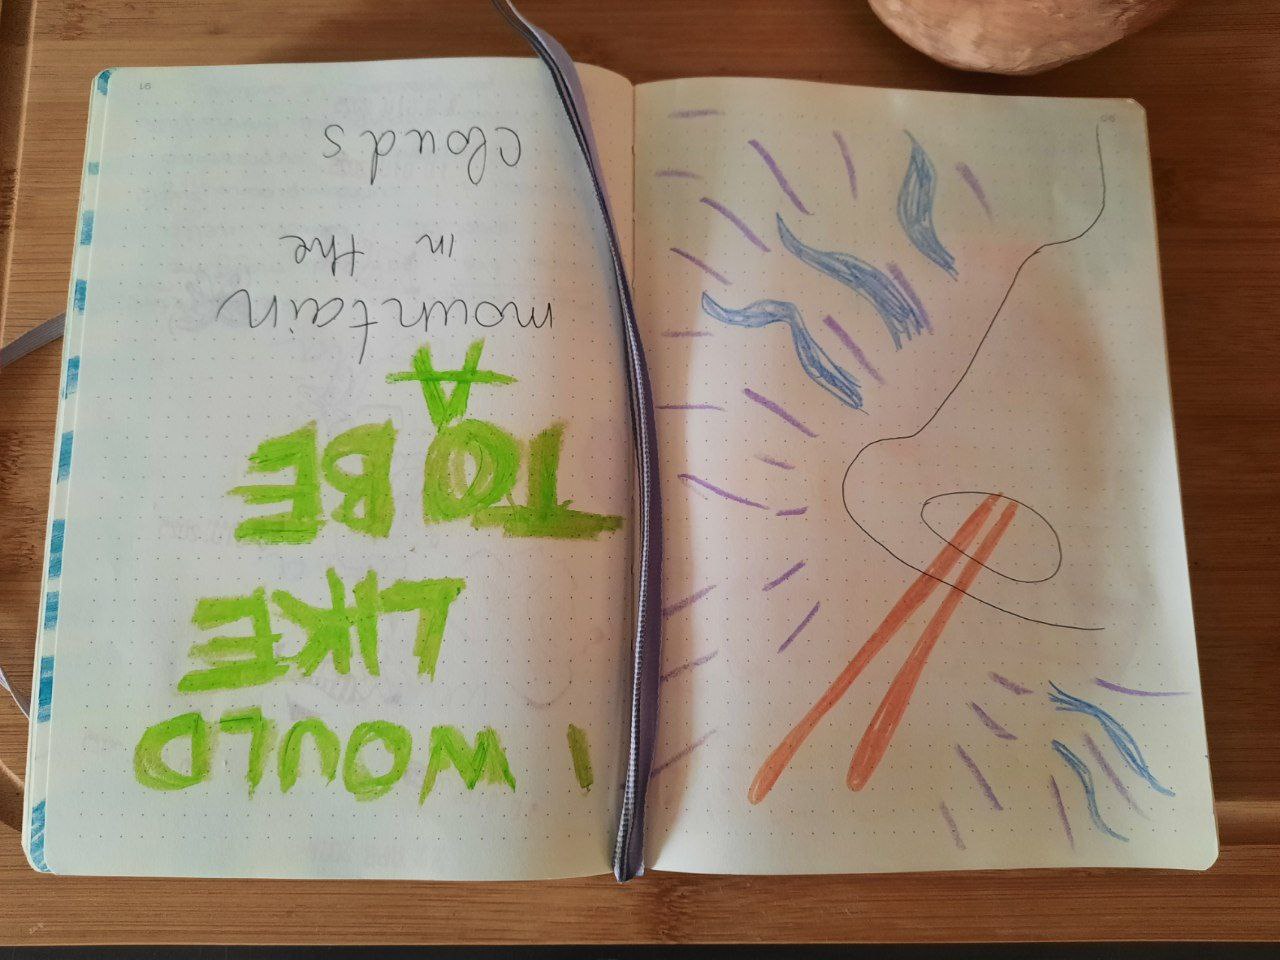 I WOULD
LIKE
TO BE
A
mountain
in the
clouds
90
91